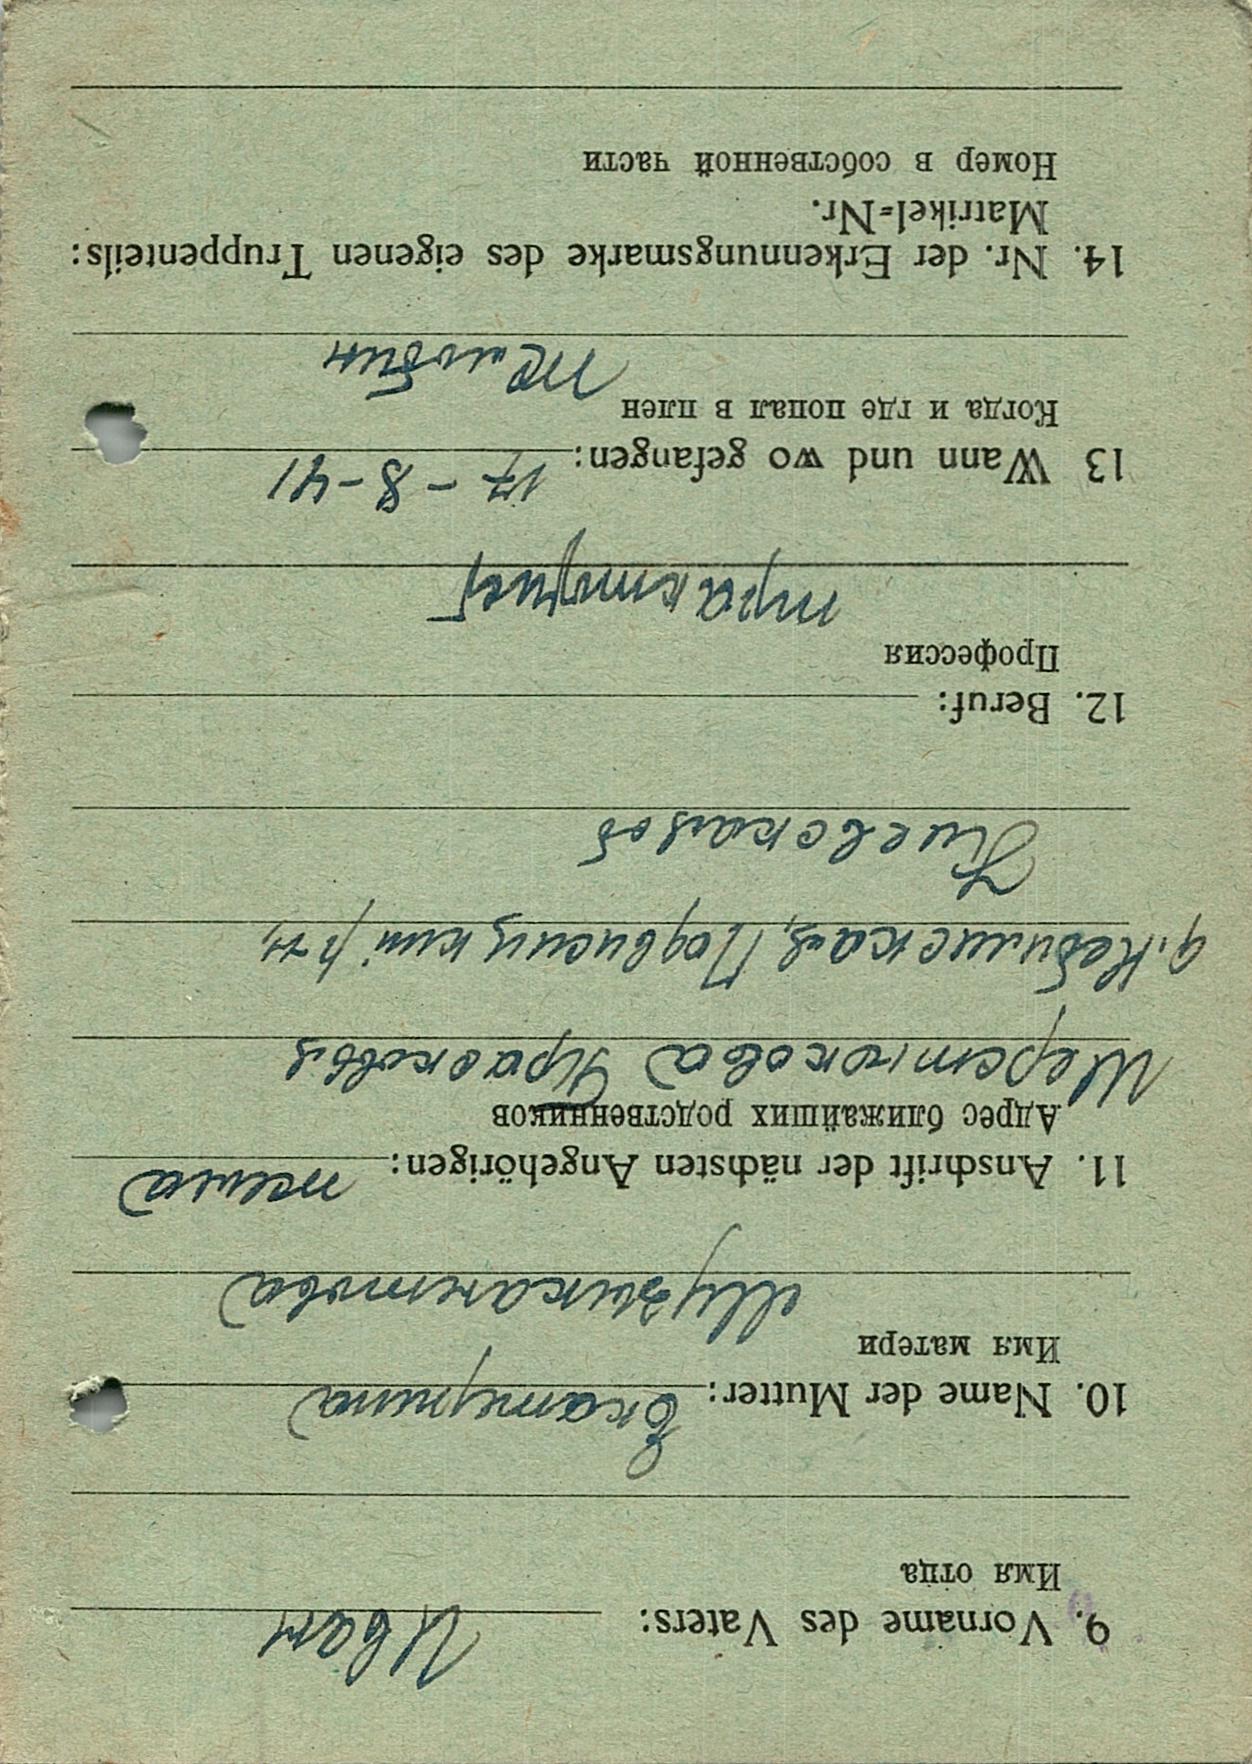 9. Vorname des Vaters: Иван
Имя отца
10. Name der Mutter: Екатерина
Имя матери
Музикантова
11. Anschrift der nächsten Angehörigen: жена
Адрес ближайших родственников
Шерстюкова Прасковья
Подвисицкий р-н,
Киевская об
12. Beruf:
Профессия
13 Wann und wo gefangen: 17-8-41
Когда и где попал в плен
14. Nr. der Erkennungsmarke des eigenen Truppenteils:
Matrikel=Nr.
Номер в собственной части